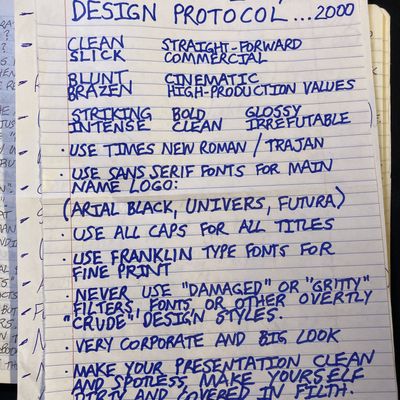 DESIGN PROTOCOL...2000
CLEAN STRAIGHT-FORWARD
SLICK COMMERCIAL
BLUNT CINEMATIC
BRAZEN HIGH-PRODUCTION VALUES
STRIKING BOLD GLOSSY
INTENSE CLEAN IRREFUTABLE
· USE TIMES NEW ROMAN / TRAJAN
· USE SANS SERIF FONTS FOR MAIN
NAME LOGO:
(ARIAL BLACK, UNIVERS, FUTURA)
· USE ALL CAPS FOR ALL TITLES
· USE FRANKLIN TYPE FONTS FOR
FINE PRINT
· NEVER USE "DAMAGED" OR "GRITTY"
FILTERS, FONTS, OR OTHER OVERTLY
"CRUDE" DESIGN STYLES.
· VERY CORPORATE AND BIG LOOK
· MAKE YOUR PRESENTATION CLEAN
AND SPOTLESS, MAKE YOURSELF
DIRTY AND COVERED IN FILTH.